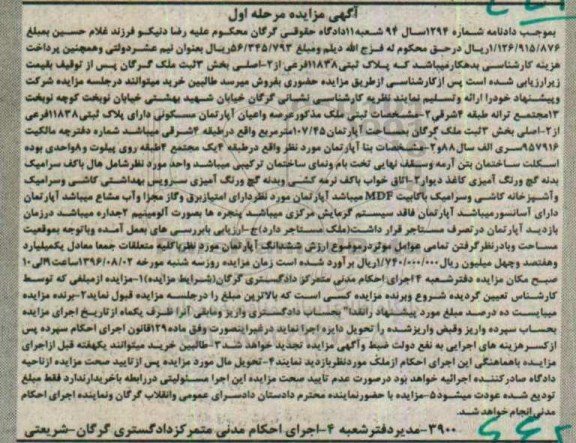 آگهی مزایده مرحله اول
بموجب دادنامه شماره ۱۳۹۴سال ۹۴ شعبه۱۱دادگاه حقوقی گرگان محکوم علیه رضا دنیکو فرزند غلام حسین بمبلغ
۱/۱۲۶/۹۱۵/۸۷۶ریال درحق محکوم له فرج الله دیلم ومبلغ ۵۶/۳۴۵/۷۹۳ریال بعنوان نیم عشردولتی وهمچنین پرداخت
هزینه کارشناسی بدهکارمیباشد که پلاک ثبتی۱۱۸۳۸فرعی از۲-اصلی بخش ۳ثبت ملک گرگان پس از توقیف بقیمت
زیرارزیابی شده است پس ازکارشناسی ازطریق مزایده حضوری بفروش میرسد طالبین خرید میتوانند درجلسه مزایده شرکت
وپیشنهاد خودرا ارائه وتسلیم نمایند نظریه کارشناسی نشانی گرگان خیابان شهید بهشتی خیابان نوبخت کوچه نوبخت
۱۳مجتمع ترانه طبقه ۴شرقی۲-مشخصات ثبتی ملک مذکورعرصه واعیان آپارتمان مسکونی دارای پلاک ثبتی۱۱۸۳۸فرعی
از۲-اصلی بخش ۳ثبت ملک گرگان بمساحت آپارتمان ۱۰۷/۴۵مترمربع واقع درطبقه ۴شرقی میباشد شماره دفترچه مالکیت
۹۵۷۹۱۶سری الف سال ۸۸و۳-مشخصات بنا آپارتمان مورد نظر واقع درطبقه ۴یک مجتمع ۴طبقه روی پیلوت و۸واحدی بوده
اسکلت ساختمان بتن آرمه وسقف نهایی تخت بام ونمای ساختمان ترکیبی میباشد واحد مورد نظرشامل هال باکف سرامیک
بدنه گچ ورنگ آمیزی کاغذ دیوار۲-اتاق خواب باکف نرمه کشی وبدنه گچ ورنگ آمیزی سرویس بهداشتی کاشی وسرامیک
وآشپزخانه کاشی وسرامیک باکابیت MDF میباشد آپارتمان مورد نظردارای امتیازبرق وگاز مجزا وآب مشاع میباشد آپارتمان
دارای آسانسورمیباشد آپارتمان فاقد سیستم گرمایش مرکزی میباشد پنجره ها بصورت آلومینیم ۲جداره میباشد درزمان
بازدید آپارتمان درتصرف مستاجر قرار داشت(ملک مستاجر دارد)ج-ارزیابی بابررسی های بعمل آمده وباتوجه بموقعیت
مساحت وبادرنظرگرفتن تمامی عوامل موثردرموضوع ارزش ششدانگ آپارتمان مورد نظرباکلیه متعلقات جمعا معادل یکمیلیارد
وهفتصد وچهل میلیون ریال۱/۷۴۰/۰۰۰/۰۰۰ریال برآورد شده است زمان مزایده روزسه شنبه مورخه ۱۳۹۶/۰۸/۰۲ساعت۹الی۱۰
صبح مکان مزایده دفترشعبه ۴اجرای احکام مدنی متمرکز دادگستری گرگان(شرایط مزایده)۱-مزایده ازمبلغی که توسط
کارشناس تعیین گردیده شروع وبرنده مزایده کسی است که بالاترین مبلغ را درجلسه مزایده قبول نماید۲-برنده مزایده
میبایست ده درصد مبلغ مورد پیشنهاد رانقدا" بحساب دادگستری واریز ومابقی آنرا ظرف یکماه ازتاریخ اجرای مزایده
بحساب سپرده واریز وقبض واریزشده را تحویل دایره اجرا نماید درغیراینصورت وفق ماده ۱۲۹قانون اجرای احکام سپرده پس
ازکسرهزینه های اجرایی به نفع دولت ضبط وآگهی مزایده تجدید خواهد شد۳-طالبین خرید میتوانند یکهفته قبل ازاجرای
مزایده باهماهنگی این اجرای احکام ازملک موردنظربازدید نمایند۴-تحویل مال مورد مزایده پس ازتایید صحت مزایده ازناحیه
دادگاه صادرکننده اجرائیه خواهد بود درصورت عدم تایید صحت مزایده این اجرا مسئولیتی دررابطه باخریدارندارد فقط مبلغ
تودیع شده عودت میشود۵-مزایده با حضورنماینده محترم دادستان دادسرای عمومی وانقلاب گرگان ونماینده اجرای احکام
مدنی انجام خواهد شد.
۳۹۰۰-مدیردفترشعبه ۴-اجرای احکام مدنی متمرکزدادگستری گرگان-شریعتی